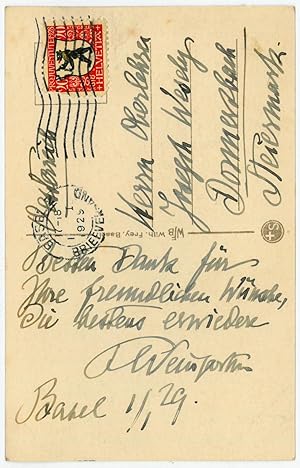 PRO JUVENTUTE 1928
20 20
HELVETIA
BASEL
BRIEFVERSAND
1929
Österreich
Herrn Oberlehrer
Joseph Wesely
Donnersbach
Steiermark.
WfB Wilh. Frey, Basel
Besten Dank für
Ihre freundlichen Wünsche,
die bestens erwiedere
FWeingartner
Basel 1/1 29.